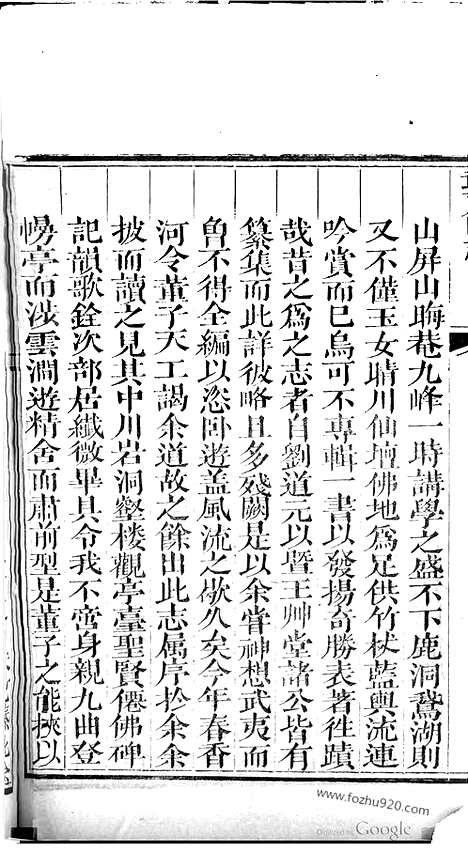 山屏山晦巷九峰一時講學之盛不下鹿洞鵞湖則
又不僅玉女晴川仙壇佛地爲足供竹杖藍輿流連
吟賞而巳烏可不專輯一書以發揚奇勝表著徃蹟
哉昔之爲之志者自劉道元以曁王艸堂諸公皆有
纂集而此詳彼略且多殘闕是以余嘗神想武夷而
曾不得全編以恣卧遊盖風流之歇久矣今年春香
河令董子天工謁余道故之餘出此志属序扵余余
披而讀之見其中川岩洞壑楼觀亭臺聖賢僊佛碑
記韻歌銓次部居纖微畢具令我不啻身親九曲登
幔亭而涉雲澗遊精舍而肅前型是董子之能挾以
www.fozhu920.com
Digitized by Google